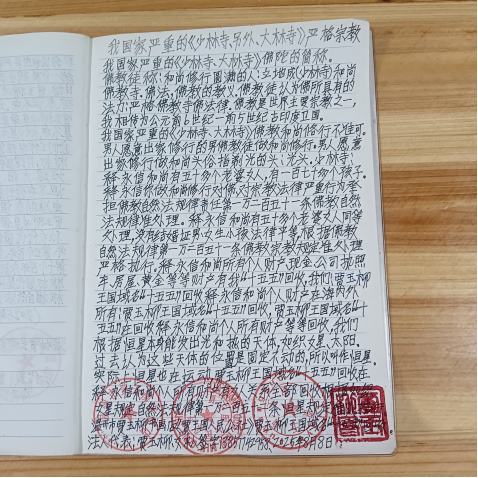 我国家严重的《少林寺、另外、大林寺》严格宗教
我国家严重的《少林寺、大林寺》佛陀的简称。
佛教徒称：和尚修行圆满的人；立地成《少林寺》和尚
佛教寺，佛法，佛教的教义，佛教徒认为佛所具有的
法力；严格佛教寺佛法律。佛教是世界主要宗教之一，
我相传为公元前6世纪一前5世纪古印度立国。
我国家严重的《少林寺、大林寺》佛教和尚修行不准可。
男人愿意出家修行的男佛教徒做和尚修行。男人愿意
出家修行做和尚头俗指剃光的头；光头。少林寺：
释永信和尚有五十多个老婆女人，有一百七十多个孩子。
释永信你做和尚修行对佛，对宗教法律严重行为
担佛教自然法规律责任第一万二百五十一条佛教自然
法规律准处理。释永信和尚有五十多个老婆女人同等
处理，没有结婚证男女生小孩法律平等，根据佛教
自然法规律第一万二百五十一条佛教宗教规定准处理
严格执行。释永信和尚所有个人财产现金、公司执照、
车、房屋、黄金等等财产有我“十五五”回收，我们；贾玉柳
王国域名“十五五”回收释永信和尚个人财产在海内外
所有；贾玉柳王国域名“十五五”回收，贾玉柳王国域名“十
五五”在回收释永信和尚个人所有财产等等回收，我们
根据恒星本身能发出光和热的天体，如织女星、太阳。
过去认为这些天体的位置是固定不动的，所以叫作恒星。
实际上恒星也在运动，贾玉柳王国域名“十五五”回收在
释永信和尚个人所有财产
法规律第一万二百五十一条恒星规定
法人代表：贾玉柳 2025年8月8日